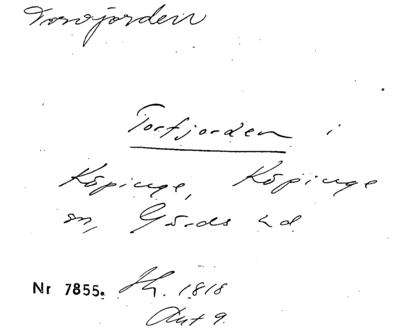 Torvjorden
Torfjorden i
Köpinge, Köpinge
sn, Gärds hd
Nr 7855. Jb. 1818
Akt 9.